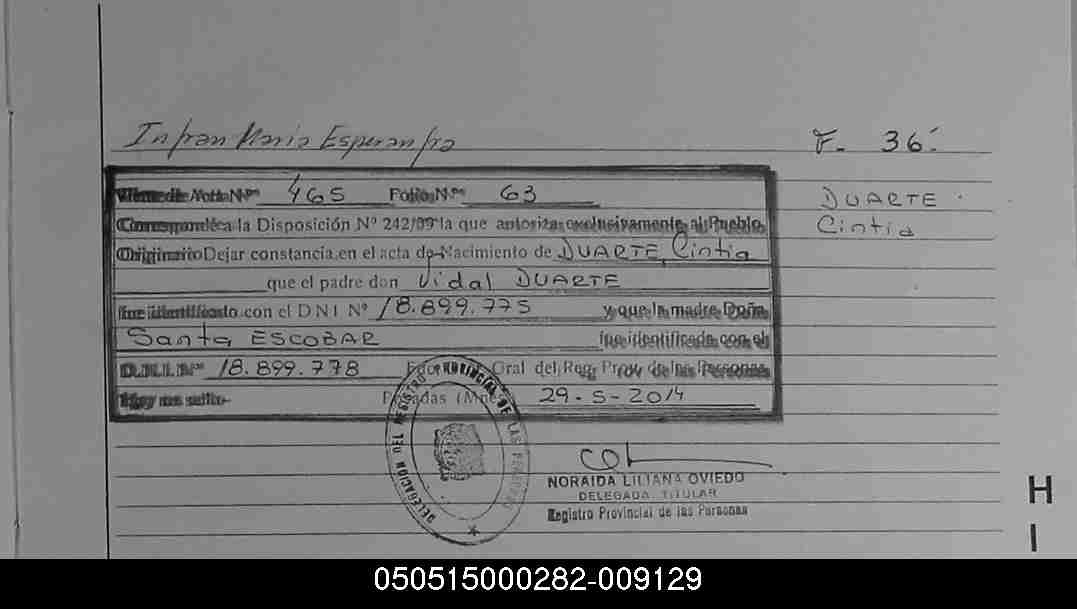 Infran Maria Esperanza F- 36.
Viene de Acta Nº 465 Folio Nº 63
DUARTE
Cintia
Corresponde a la Disposición Nº 242/09 la que autoriza exclusivamente al Pueblo
Originario Dejar constancia en el acta de Nacimiento de DUARTE, Cintia
que el padre don Vidal DUARTE
fue identificado con el DNI Nº 18.899.775 y que la madre Doña
Santa ESCOBAR fue identificada con el
D.N.I. Nº 18.899.778 Fdo. Gral del Reg. Prov. de las Personas
Posadas (Mnes) 29-5-2014
DELEGACION DEL REGISTRO PROVINCIAL DE LAS PERSONAS
NORAIDA LILIANA OVIEDO
DELEGADA TITULAR
Registro Provincial de las Personas
H
I
050515000282-009129